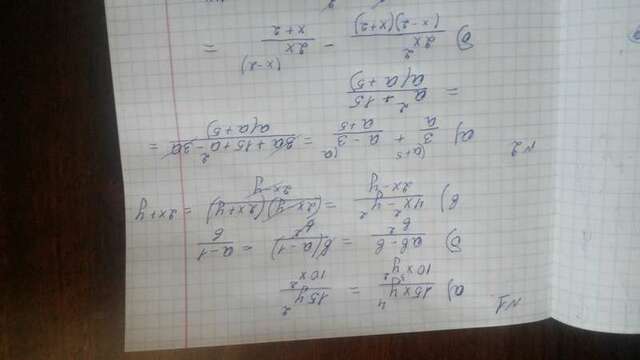 №1
а) 15xy⁴/10x³y² = 15y²/10x²
б) ab-b/b² = b(a-1)/b² = a-1/b
в) 4x²-y²/2x-y = (2x-y)(2x+y)/2x-y = 2x+y
№2
а) 3/a (a+5) + a-3/a+5 (a) = 3a+15+a²-3a/a(a+5) =
= a²+15/a(a+5)
б) 2x²/(x-2)(x+2) - 2x/x+2 (x-2) =